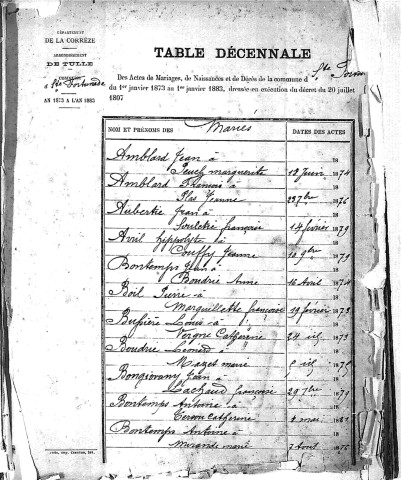 DÉPARTEMENT
DE LA CORRÈZE
ARRONDISSEMENT
DE TULLE
COMMUNE
d Ste Fortunade
AN 1873 A L'AN 1883
TABLE DÉCENNALE
Des Actes de Mariages, de Naissances et de Décès de la commune d Ste
du 1er janvier 1873 au 1er janvier 1883, dressée en exécution du décret du 20 juillet
1807
NOM ET PRÉNOMS DES Mariés DATES DES ACTES
Amblard Jean à
marguerite 12 Juin 1874
Amblard François à
Plas Jeanne 1876
Aubertie Jean à
Soulétie françoise 14 février 1879
Avil hippolyte à
Couffy Jeanne 10 9bre 1879
Bontemps Jean à
Boudrie Anne 16 Avril 1874
Boil Pierre à
Marguillette françoise 19 février 1873
Bussière Louis à
Vergne Catherine 24
Boudrie Léonard à
Mazet marie
Bongiovany Jean
Lachaud françoise 29 7bre 1879
Bontemps Antoine à
Terriou Catherine mai
Bontemps Antoine à
Mirande marie 7 Aout